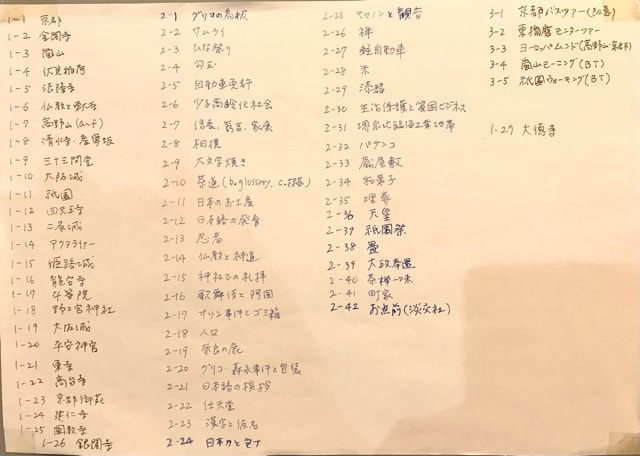 1-1 京都
1-2 金閣寺
1-3 嵐山
1-4 伏見稲荷
1-5 法隆寺
1-6 仏教と東大寺
1-7 高野山 (a~f)
1-8 清水寺・
1-9 三十三間堂
1-10 大阪城
1-11 祇園
1-12 四天王寺
1-13 二条城
1-14 アクアライナー
1-15 姫路城
1-16 龍安寺
1-17 平等院
1-18 野々宮神社
1-19 大阪城
1-20 平安神宮
1-21 東寺
1-22 高台寺
1-23 京都御苑
1-24 建仁寺
1-25 圓教寺
1-26 銀閣寺
2-1 グリコの看板
2-2 サムライ
2-3 ひな祭り
2-4 勾玉
2-5 自動車免許
2-6 少子高齢化社会
2-7 信長、秀吉、家康
2-8 相撲
2-9 大文字焼き
2-10 茶道 (b.glossary, c.
2-11 日本のお土産
2-12 日本語の発音
2-13 忍者
2-14 仏教と神道
2-15 神社での礼拝
2-16 歌舞伎と阿国
2-17 サリン事件とゴミ箱
2-18 人口
2-19 奈良の鹿
2-20 グリコ・森永事件と包装
2-21 日本語の挨拶
2-22 任天堂
2-23 漢字と仮名
2-24 日本刀と包丁
2-25 キヤノンと観音
2-26 禅
2-27 軽自動車
2-28 米
2-29 漆器
2-30 生活保護と貧困ビジネス
2-31 堺泉北臨海工業地帯
2-32 パチンコ
2-33 蔵屋敷
2-34 和菓子
2-35 埋葬
2-36 天皇
2-37 祇園祭
2-38 畳
2-39 大政奉還
2-40 茶禅一味
2-41 町家
2-42 お点前 (淡交社)
3-1 京都バスツアー
3-2 東播磨モニターツアー
3-3 ヨーロッパムンド (高野山・京都)
3-4 嵐山モーニング (BT)
3-5 祇園ウォーキング (BT)
1-27 大徳寺